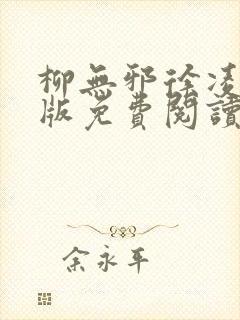 柳無邪徐凌
版免費閱讀
余永平